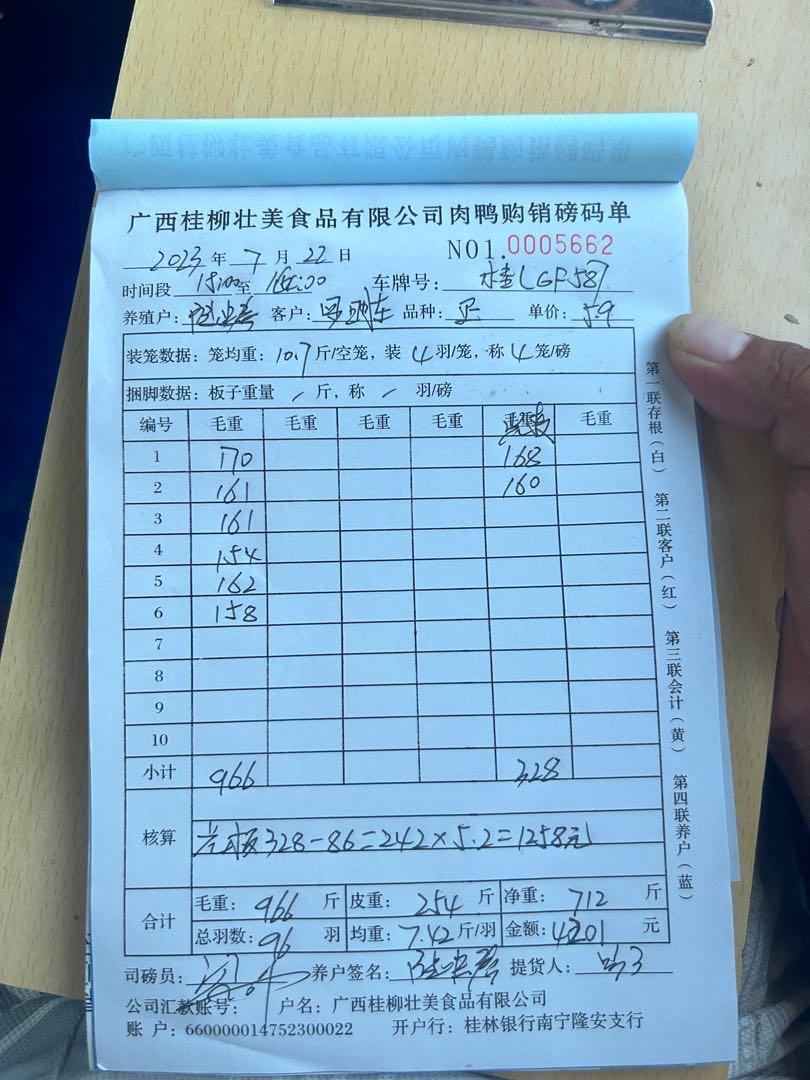 广西桂柳壮美食品有限公司肉鸭购销磅码单
2023年7月22日 NO1.0005662
时间段 15:00至16:00 车牌号: 桂LGF587
养殖户: 客户: 品种: 单价: 59
装笼数据:笼均重:10.7斤/空笼,装4羽/笼,称4笼/磅
捆脚数据:板子重量 / 斤,称 / 羽/磅
编号 毛重 毛重 毛重 毛重 毛重 毛重
1 170 168
2 161 160
3 161
4 154
5 162
6 158
7
8
9
10
小计 966 328
核算 328-86=242×5.2=1258元
合计 毛重:966斤 皮重:254斤 净重:712斤
总羽数:96羽 均重:7.42斤/羽 金额:4201元
司磅员: 养户签名: 提货人:
公司汇款账号: 户名:广西桂柳壮美食品有限公司
账户:660000014752300022 开户行:桂林银行南宁隆安支行
第一联存根(白) 第二联客户(红) 第三联会计(黄) 第四联养户(蓝)